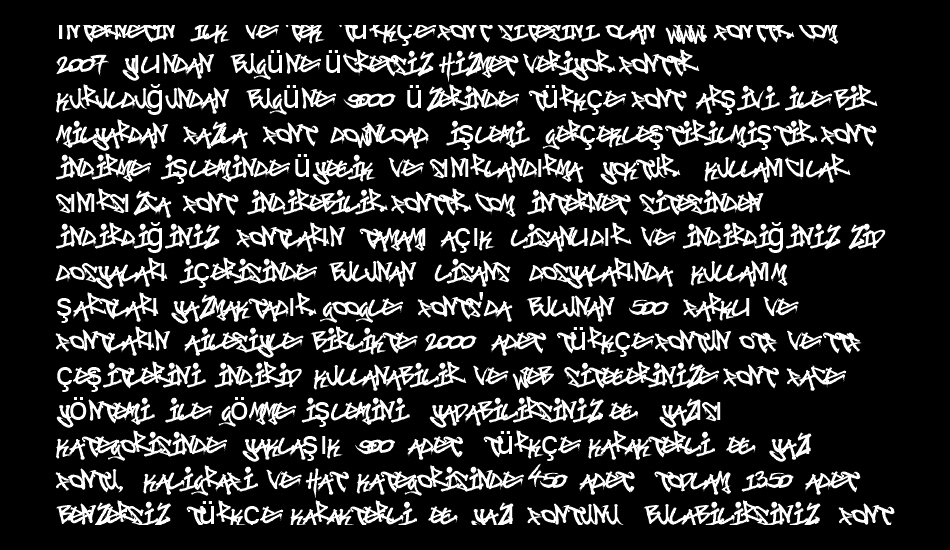 İNTERNETİN İLK VE TEK TÜRKÇE FONT SİTESİNİ OLAN WWW.FONTTR.COM
2007 YILINDAN BUGÜNE ÜCRETSİZ HİZMET VERİYOR.FONTTR
KURULDUĞUNDAN BUGÜNE 9000 ÜZERİNDE TÜRKÇE FONT ARŞİVİ İLE BİR
MİLYARDAN FAZLA FONT DOWNLOAD İŞLEMİ GERÇEKLEŞTİRİLMİŞTİR.FONT
İNDİRME İŞLEMİNDE ÜYELİK VE SINIRLANDIRMA YOKTUR. KULLANICILAR
SINIRSIZCA FONT İNDİREBİLİR.FONTTR.COM İNTERNET SİTESİNDEN
İNDİRDİĞİNİZ FONTLARIN TAMAMI AÇIK LİSANLIDIR VE İNDİRDİĞİNİZ ZIP
DOSYALARI İÇERİSİNDE BULUNAN LİSANS DOSYALARINDA KULLANIM
ŞARTLARI YAZMAKTADIR.GOOGLE FONTS'DA BULUNAN 500 FARKLI VE
FONTLARIN AİLESİYLE BİRLİKTE 2000 ADET TÜRKÇE FONTUN OTF VE TTF
ÇEŞİTLERİNİ İNDİRİP KULLANABİLİR VE WEB SİTELERİNİZE FONT FACE
YÖNTEMİ İLE GÖMME İŞLEMİNİ YAPABİLİRSİNİZ.EL YAZISI
KATEGORİSİNDE YAKLAŞIK 900 ADET TÜRKÇE KARAKTERLİ EL YAZI
FONTU, KALİGRAFİ VE HAT KATEGORİSİNDE 450 ADET TOPLAM 1350 ADET
BENZERSİZ TÜRKÇE KARAKTERLİ EL YAZI FONTUNU BULABİLİRSİNİZ FONT